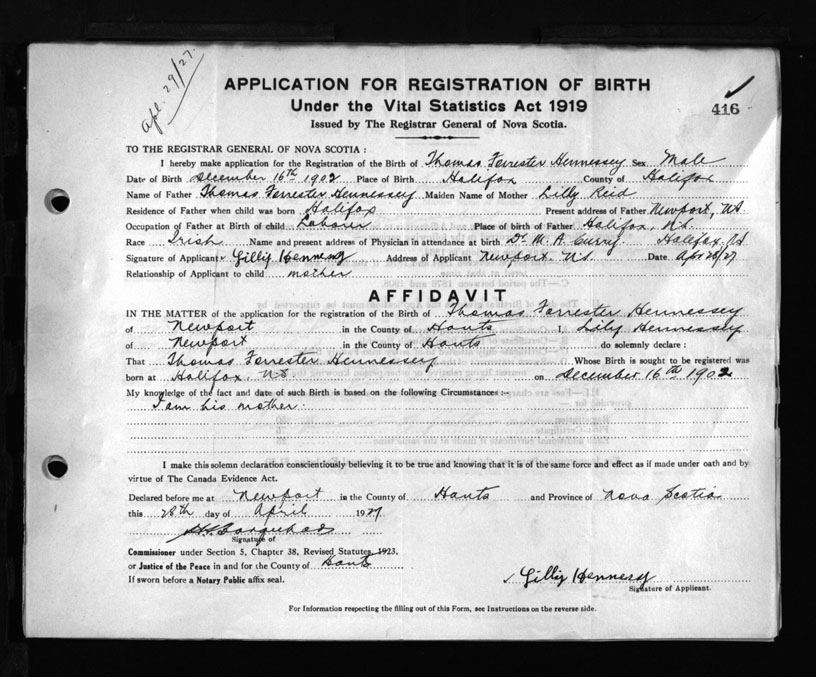 Apl 29/27.
APPLICATION FOR REGISTRATION OF BIRTH
Under the Vital Statistics Act 1919
416
Issued by The Registrar General of Nova Scotia.
TO THE REGISTRAR GENERAL OF NOVA SCOTIA :
I hereby make application for the Registration of the Birth of Thomas Forrester Hennessey Sex Male
Date of Birth December 16th 1902 Place of Birth Halifax County of Halifax
Name of Father Thomas Forrester Hennessey Maiden Name of Mother Lilly Reid
Residence of Father when child was born Halifax Present address of Father Newport, N.S.
Occupation of Father at Birth of child Laborer Place of birth of Father Halifax, N.S.
Race Irish Name and present address of Physician in attendance at birth Dr. M. A. Curry. Halifax, N.S.
Signature of Applicant Lilly Hennesy Address of Applicant Newport. N.S. Date Apr 28/27
Relationship of Applicant to child mother
AFFIDAVIT
IN THE MATTER of the application for the registration of the Birth of Thomas Forrester Hennessey
of Newport in the County of Hants I, Lily Hennessey
of Newport in the County of Hants do solemnly declare :
That Thomas Forrester Hennessey Whose Birth is sought to be registered was
born at Halifax, N.S. on December 16th 1902
My knowledge of the fact and date of such Birth is based on the following Circumstances :-
I am his mother.
I make this solemn declaration conscientiously believing it to be true and knowing that it is of the same force and effect as if made under oath and by
virtue of The Canada Evidence Act.
Declared before me at Newport in the County of Hants and Province of Nova Scotia
this 28th day of April 1927
Signature of
Commissioner under Section 5, Chapter 38, Revised Statutes, 1923.
or Justice of the Peace in and for the County of Hants
If sworn before a Notary Public affix seal.
Lilly Hennesy
Signature of Applicant.
For Information respecting the filling out of this Form, see Instructions on the reverse side.